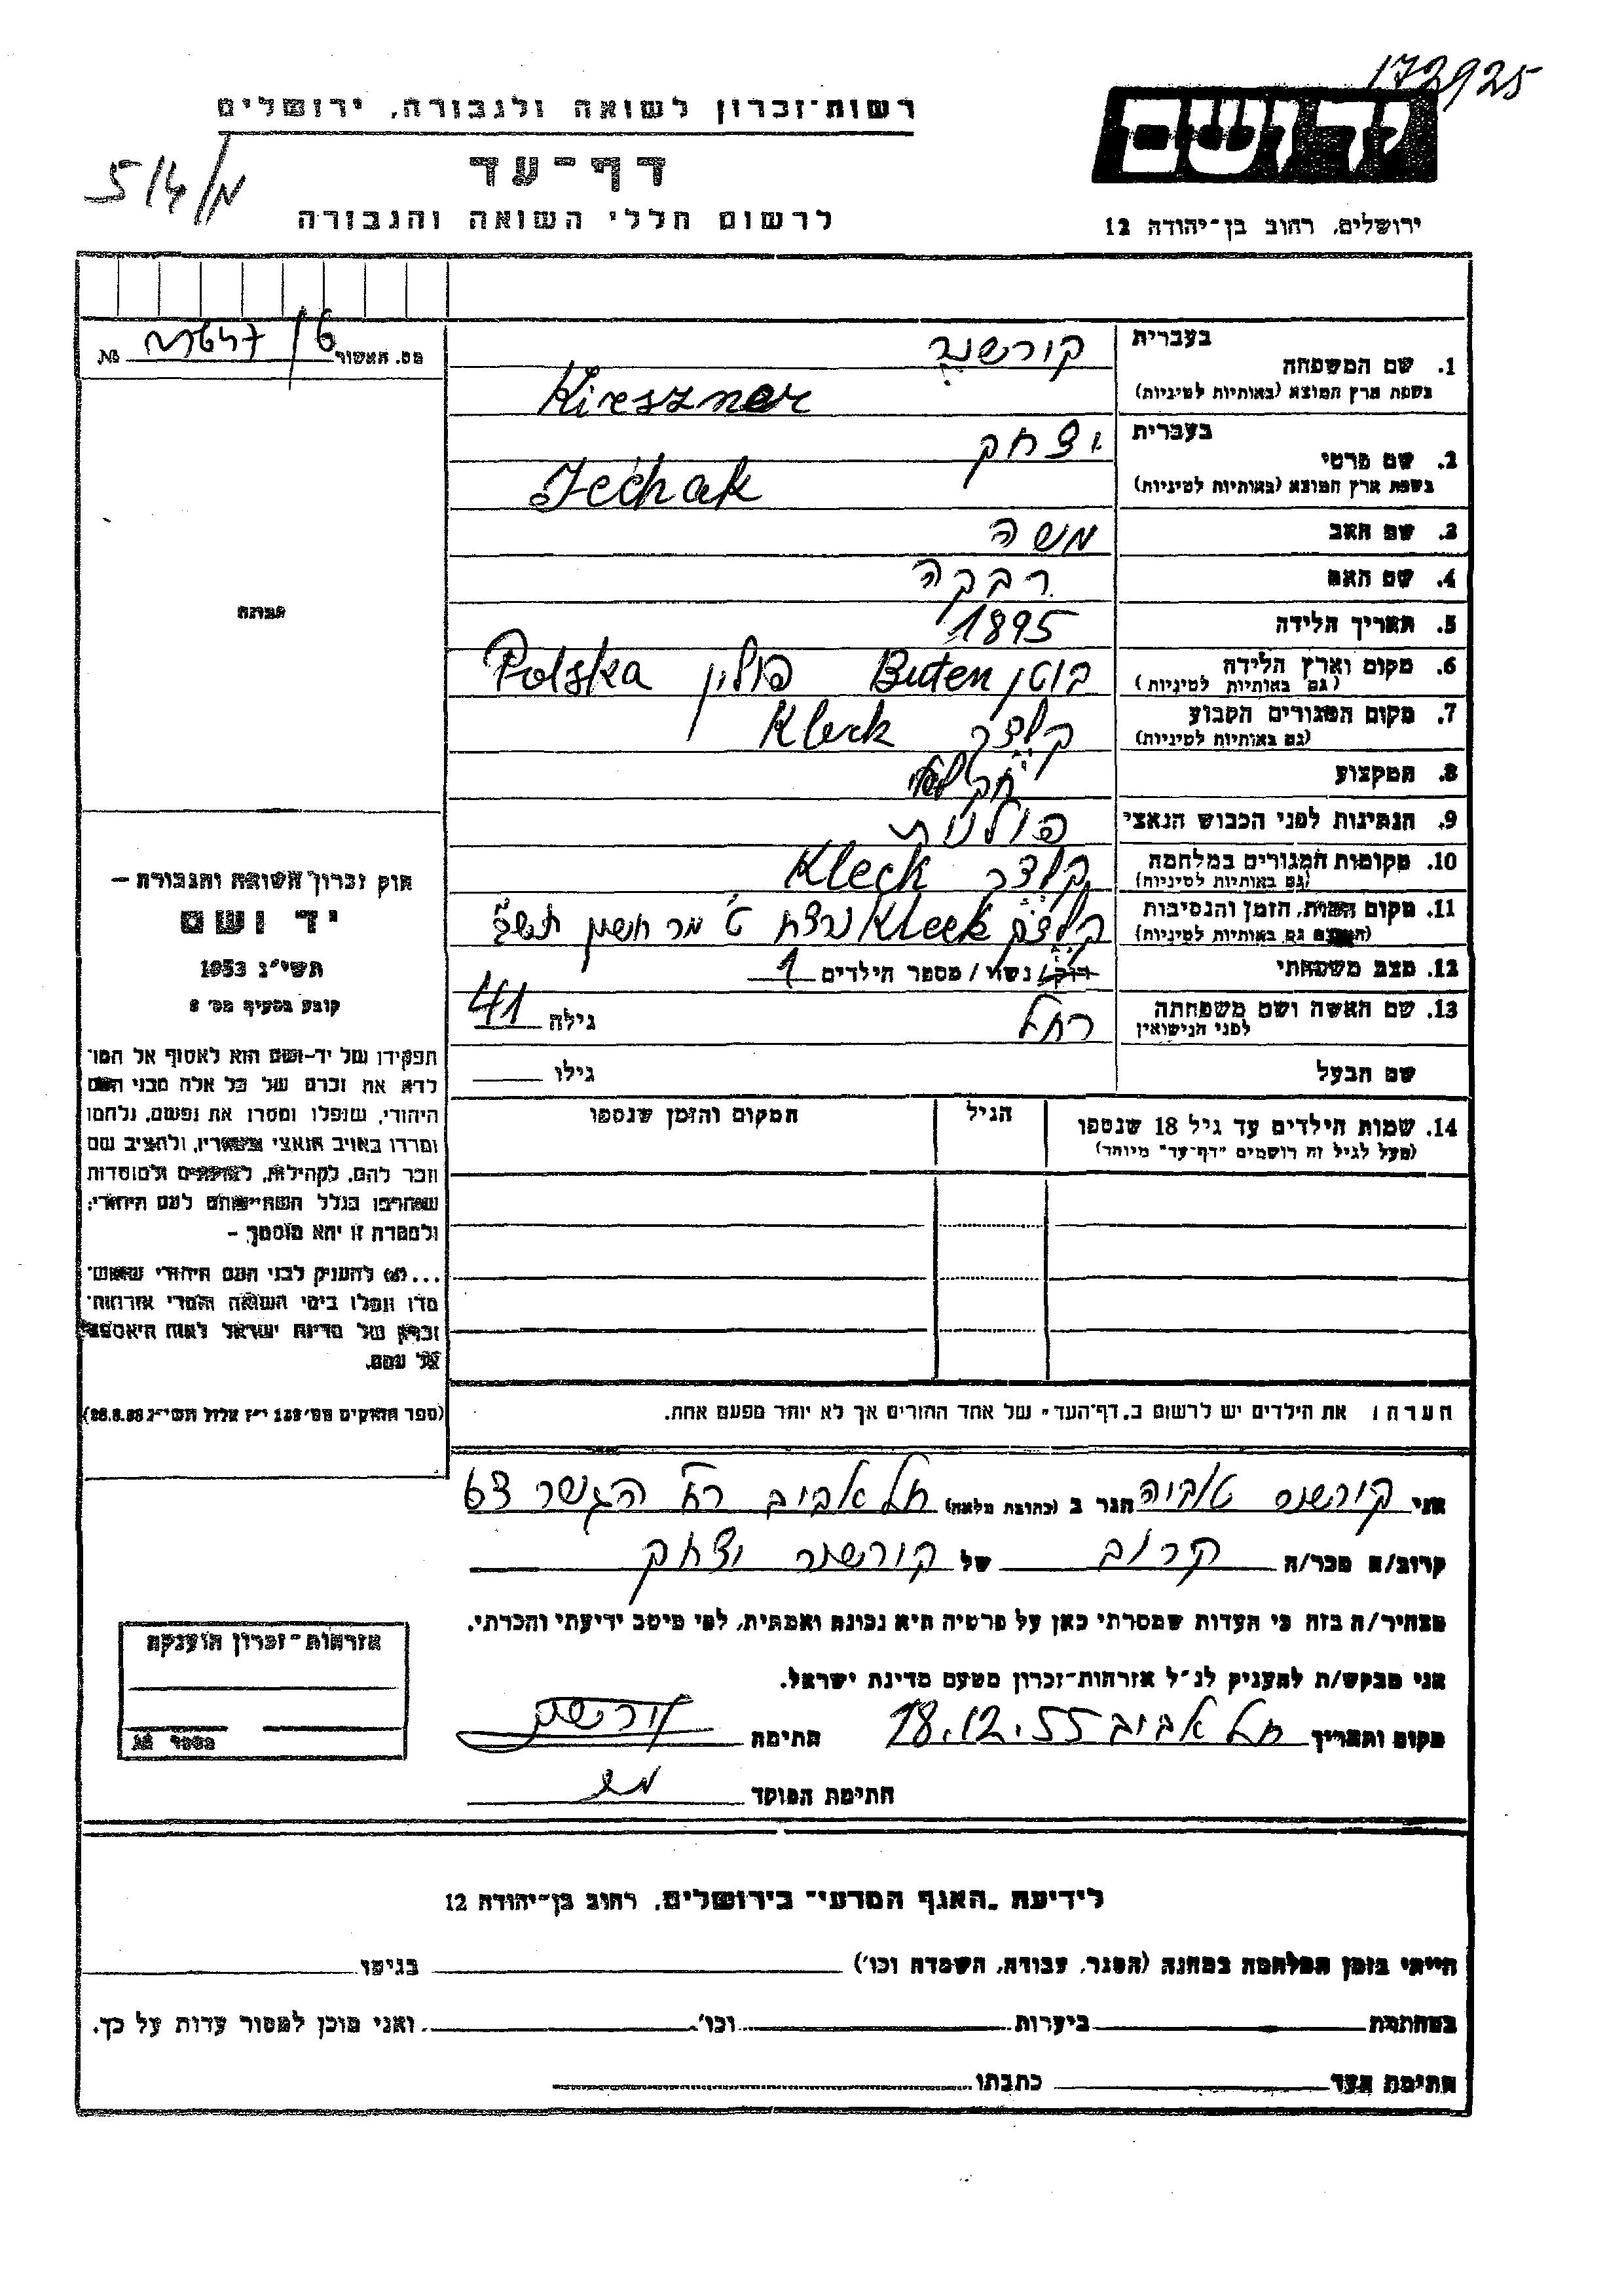 172925
רשות-זכרון לשואה ולגבורה, ירושלים
יד ושם
דף-עד
5/4/מ
לרשום חללי השואה והגבורה
ירושלים, רחוב בן-יהודה 12
בעברית
1. שם המשפחה
(בשפת ארץ המוצא (באותיות לטיניות
קורשנר
Kireszner
בעברית
2. שם פרטי
(בשפת ארץ המוצא (באותיות לטיניות
יצחק
Icchak
3. שם האב משה
4. שם האם רבקה
5. תאריך הלידה 1895
6. מקום וארץ הלידה
(גם באותיות לטיניות)
בוטן Buten פולין Polska
7. מקום המגורים הקבוע
(גם באותיות לטיניות)
קלצק Kleck
8. המקצוע
9. הנתינות לפני הכבוש הנאצי פולנית
10. מקומות המגורים במלחמה
(גם באותיות לטיניות)
קלצק Kleck
11. מקום המות, הזמן והנסיבות
(המקום גם באותיות לטיניות)
קלצק Kleck נרצח ט' מר חשון
12. מצב משפחתי רוק/ נשוי / מספר הילדים 1
13. שם האשה ושם משפחתה
לפני הנישואין
רחל גילה 41
שם הבעל גילו
14. שמות הילדים עד גיל 18 שנספו
(מעל לגיל זה רושמים "דף-עד" מיוחד)
הגיל
המקום והזמן שנספו
הערה: את הילדים יש לרשום ב„דף-העד" של אחד ההורים אך לא יותר מפעם אחת.
מס. האשור №
תמונה
חוק זכרון השואה והגבורה –
יד ושם
תשי"ג 1953
קובע בסעיף מס' 2
תפקידו של יד-ושם הוא לאסוף אל המו־
לדת את זכרם של כל אלה מבני העם
היהודי, שנפלו ומסרו את נפשם, נלחמו
ומרדו באויב הנאצי ובעוזריו, ולהציב שם
וזכר להם, לקהילות, לארגונים ולמוסדות
שנחרבו בגלל השתייכותם לעם היהודי;
ולמטרה זו יהא מוסמך –
...(4) להעניק לבני העם היהודי שהוש־
מדו ונפלו בימי השואה והמרי אזרחות־
זכרון של מדינת ישראל לאות היאספם
אל עמם.
(ספר החוקים מס' 132 י"ז אלול תשי"ג 28.8.53)
אני קורשנר טוביה הגר ב (כתובת מלאה) תל אביב רח' הגשר 63
קרוב/ה מכר/ה קרוב של קורשנר יצחק
מצהיר/ה בזה כי העדות שמסרתי כאן על פרטיה היא נכונה ואמתית, לפי מיטב ידיעתי והכרתי.
אני מבקש/ת להעניק לנ"ל אזרחות-זכרון מטעם מדינת ישראל.
מקום ותאריך תל אביב 18.12.55 חתימה
חתימת הפוקד
אזרחות-זכרון הוענקה
מספר №
לידיעת „האגף המדעי" בירושלים, רחוב בן-יהודה 12
הייתי בזמן המלחמה במחנה (הסגר, עבודה, השמדה וכו') בגיטו
במחתרת ביערות וכו' ואני מוכן למסור עדות על כך.
חתימת העד כתבתו